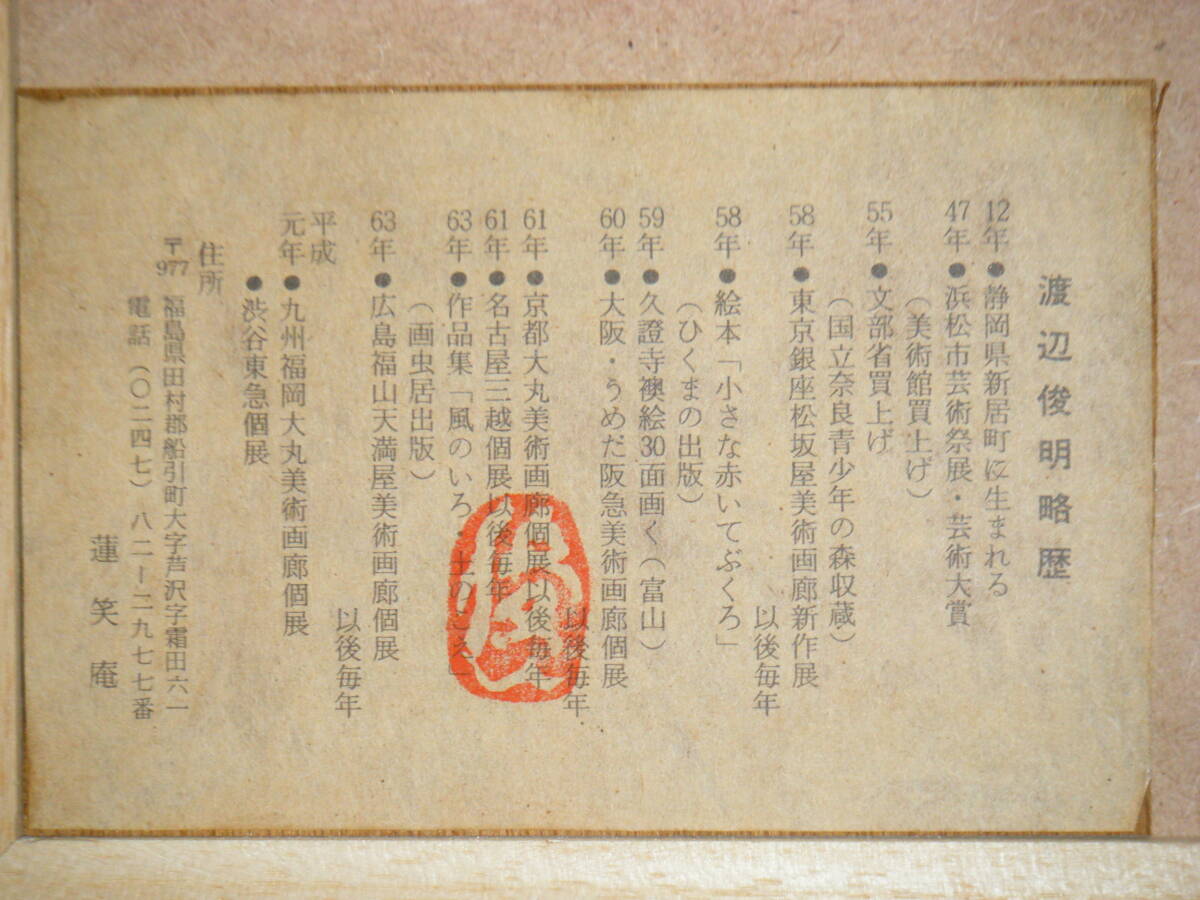 渡辺俊明略歴
12年●静岡県新居町に生まれる
47年●浜松市芸術祭展・芸術大賞
（美術館買上げ）
55年●文部省買上げ
（国立奈良青少年の森収蔵）
58年●東京銀座松坂屋美術画廊新作展
以後毎年
58年●絵本「小さな赤いてぶくろ」
（ひくまの出版）
59年●久證寺襖絵30面画く（富山）
60年●大阪・うめだ阪急美術画廊個展
以後毎年
61年●京都大丸美術画廊個展以後毎年
61年●名古屋三越個展以後毎年
63年●作品集「風のいろ・土のこえ」
（画虫居出版）
63年●広島福山天満屋美術画廊個展
以後毎年
平成
元年●九州福岡大丸美術画廊個展
●渋谷東急個展
住所
〒977 福島県田村郡船引町大字芦沢字霜田六一
電話（〇二四七）八二ー二九七七番
蓮笑庵